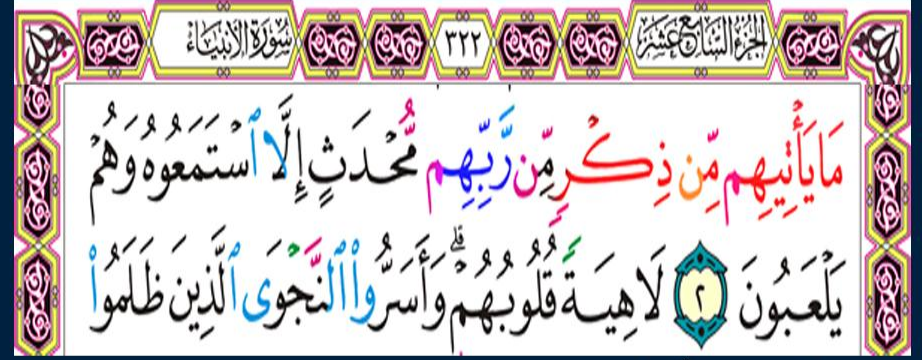 الجزء السابع عشر ٣٢٢ سورة الأنبياء
مَا يَأْتِيهِم مِّن ذِكْرٍ مِّن رَّبِّهِم مُّحْدَثٍ إِلَّا ٱسْتَمَعُوهُ وَهُمْ
يَلْعَبُونَ ٢ لَاهِيَةً قُلُوبُهُمْ ۗ وَأَسَرُّوا۟ ٱلنَّجْوَى ٱلَّذِينَ ظَلَمُوا۟